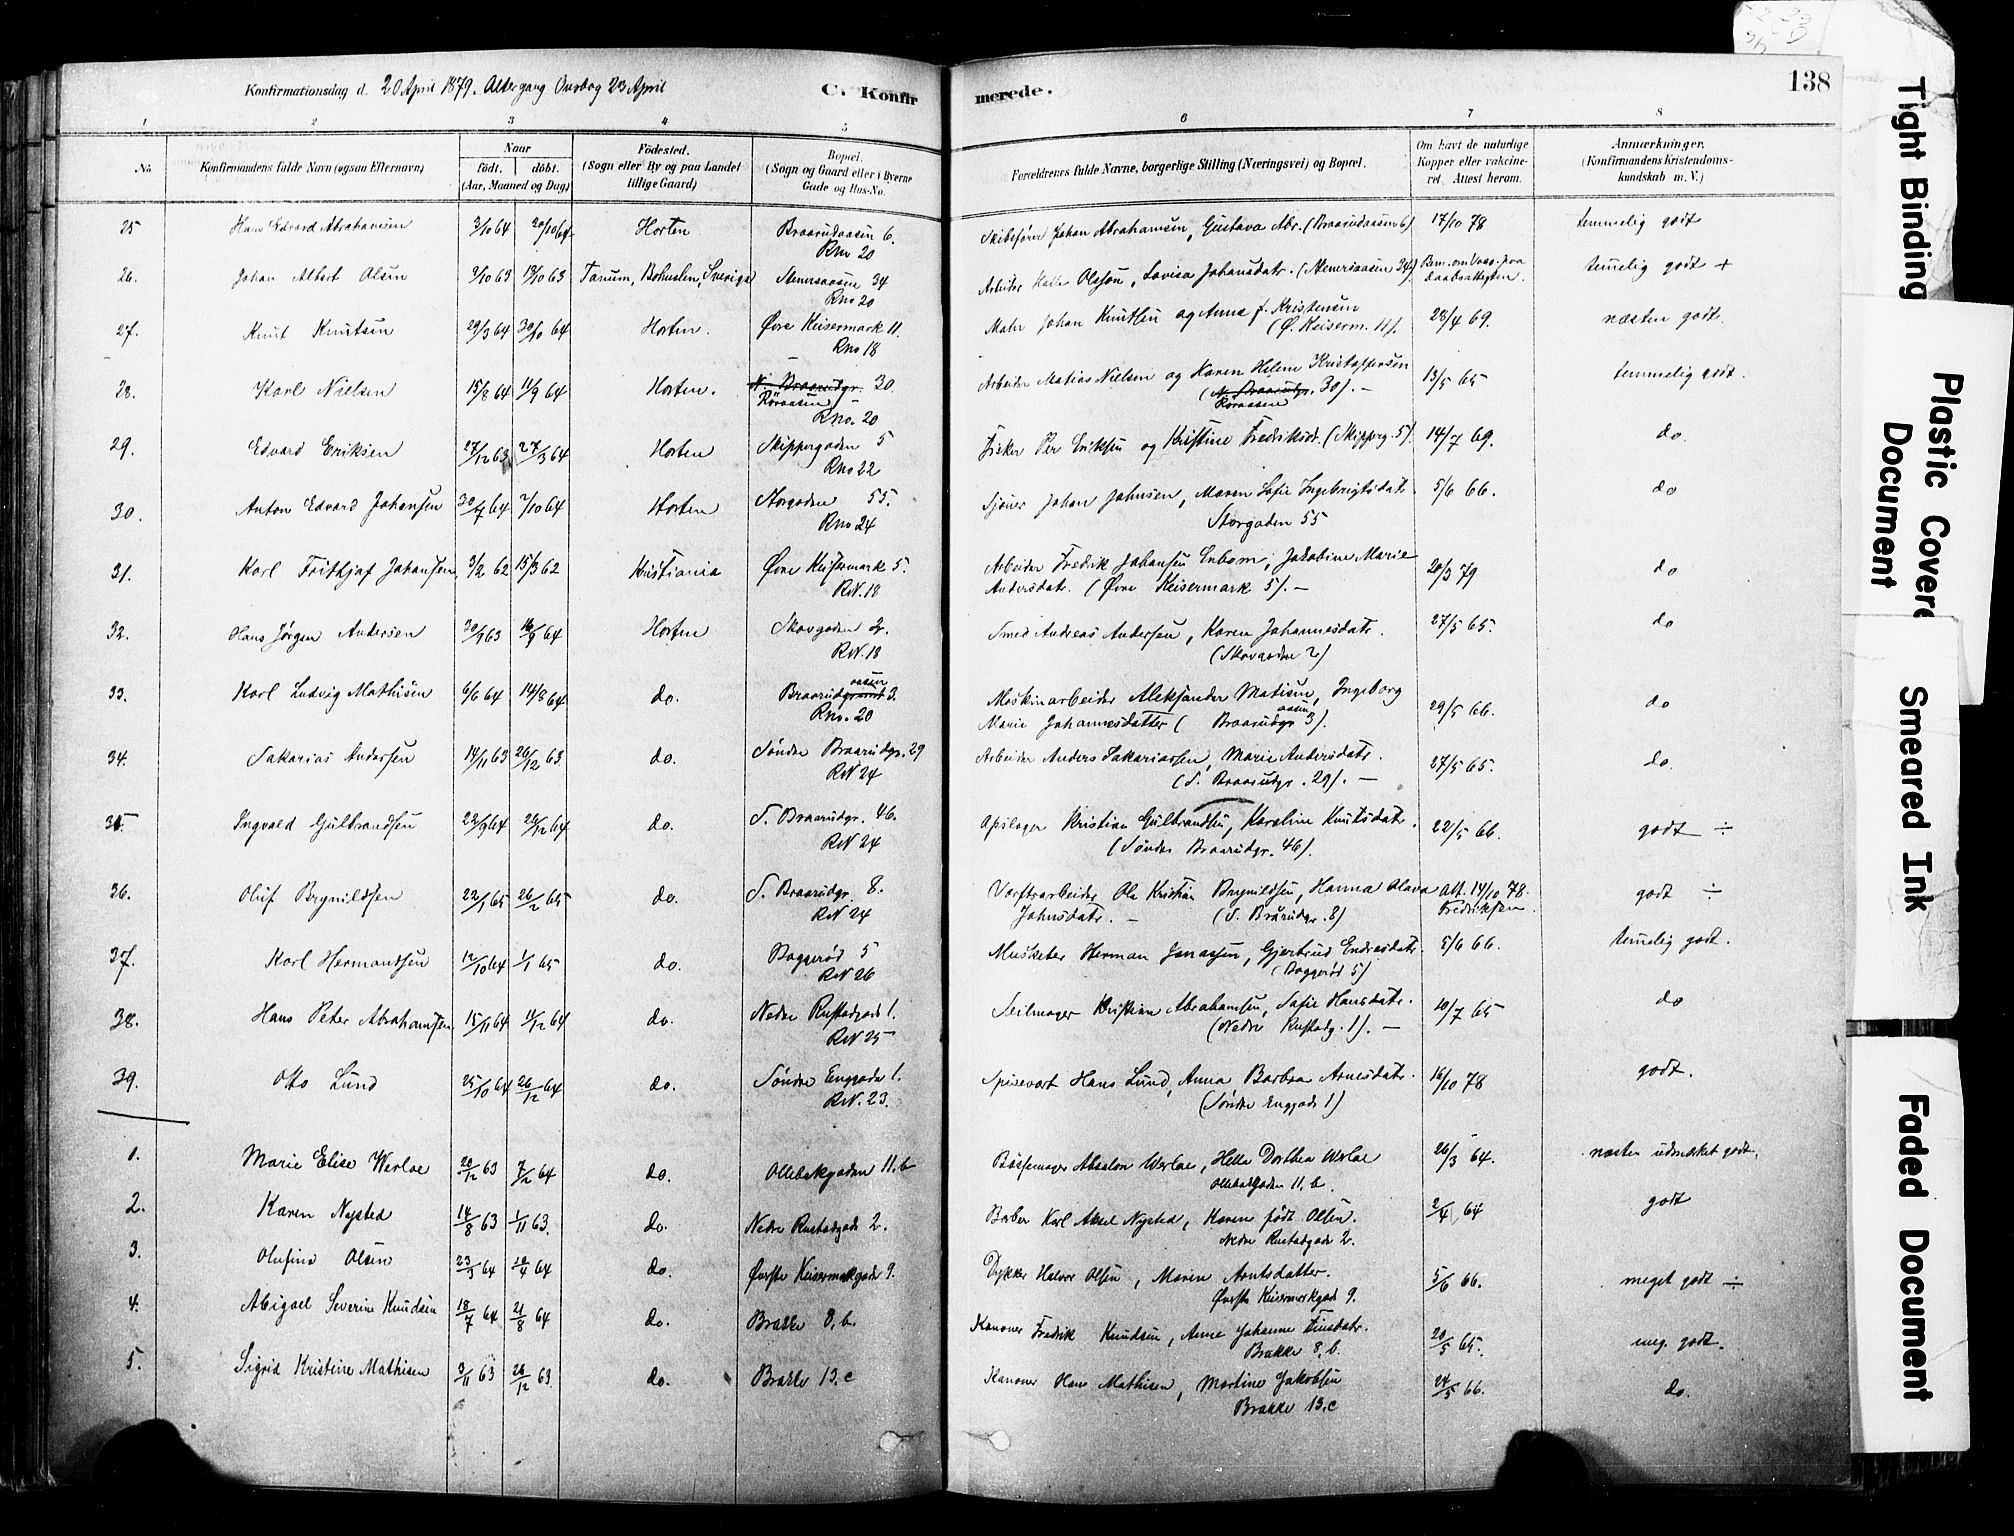 138
Konfirmationsdag d. 20 April 1879. Altergang Onsdag 23 April
C. Konfirmerede.
1 2 3 4 5 6 7 8
No. Konfirmandens fulde Navn (ogsaa Efternavn) Naar födt. döbt. (Aar, Maaned og Dag) Födested. (Sogn eller By og paa Landet tillige Gaard) Bopæl. (Sogn og Gaard eller i Byerne Gade og Hus-No. Forældrenes fulde Navne, borgerlige Stilling (Næringsvei) og Bopæl. Om havt de naturlige Kopper eller vakcineret. Attest herom. Anmærkninger. (Konfirmandens Kristendomskundskab m. V.)
25 Hans Edvard Abrahamsen 3/10 64 20/10 64 Horten Braarudaasen 6. Skibsfører Johan Abrahamsen, Gustava Abr. (Braarudaasen 6) 17/10 78 temmelig godt
Rno 20
26. Johan Albert Olsen 3/10 63 13/10 63 Tanum, Bohuslen, Sverige Stenersaasen 34 Arbeider Olsson, Lovisa Johansdatr. (Stenersaasen 34)
Rno 20 temelig godt +
27. Knut Knutsen 29/3 64 30/10 64 Horten. Øvre Keisermark 11. Johan Knutsen og Anna f. Kristensen 23/4 69. næsten godt.
Rno 18 (Ø. Keiserm. 11).
28. Karl Nielsen 15/8 64 11/9 64 Horten. N. Braarudgr. 30 Arbeider Matias Nielsen og Karen Helene Kristoffersen 13/5 65 temmelig godt.
Röraasen (N. Braarudgr. 30). —
Rno. 20 Röraasen
29. Edvard Eriksen 27/12 63 27/3 64 Horten Skippergaden 5 Fisker Per Eriksen og Kristine Fredriksdr. (Skipperg. 5). 14/7 69. do.
Rno 22
30. Anton Edvard Johansen 30/7 64 2/10 64 Horten Storgaden 55. Sjøner Johan Johnsen, Maren Sofie Ingebrigtsdatr. 5/6 66. do
Rno 24 Storgaden 55
31. Karl Frithjof Johansen 3/2 62 15/3 62 Kristiania Øvre Keisermark 5. Arbeider Fredrik Johansen Enbom, Jakobine Marie 20/3 79 do
RN. 18 Andersdatr. (Øvre Keisermark 5). —
32. Hans Jørgen Andersen 16/9 64 Horten Skovgaden 2. Smed Andreas Andersen, Karen Johannesdatr. 27/5 65. do
RN. 18 (Skovgaden 2)
33. Karl Ludvig Mathisen 6/6 64 14/8 64 do. Braarudaasen 3. Maskinarbeider Aleksander Matisen, Ingeborg 29/5 66. do
Rno. 20 Marie Johannesdatter (Braarudaasen 3).
34. Sakarias Andersen 14/11 63 26/12 63 do. Søndre Braarudgr. 29 Arbeider Anders Sakariassen, Marie Andersdatr. 27/5 65. do.
RN 24 (S. Braarudgr. 29). —
35. Ingvald Gulbrandsen 22/9 64 26/12 64 do. S. Braarudgr. 46. Opslager Kristian Gulbrandsen, Karoline Knutsdatr. 22/5 66. godt ÷
RN 24 (Søndre Braarudgr. 46).
36. Oluf Brynildsen 22/1 65 26/2 65 do. S. Braarudgr. 8. Verftsarbeider Ole Kristian Brynildsen, Hanna Olava Att. 14/10 78. godt ÷
RN 24 Johnsdatr. — (S. Brårudgr. 8) Fredriksen.
37. Karl Hermansen 12/10 64 1/1 65 do. Baggerød 5 Musketer Herman Jonassen, Gjertrud Endresdatr. 5/6 66. temelig godt.
RN 26 (Baggerød 5)
38. Hans Peter Abrahamsen 15/11 64 11/12 64 do. Nedre Rustadgade 1. Seilmager Kristian Abrahamsen, Sofie Hansdatr. 10/7 65 do
RN 25 (Nedre Rustadg. 1). —
39. Otto Lund 25/10 64 26/12 64 do. Søndre Enggade 1. Spisevert Hans Lund, Anna Barbra Arnesdatr. 16/10 78 godt.
RN. 23. (Søndre Enggade 1)
1. Marie Elise Werloe 20/12 63 7/2 64 do. Ollebakgaden 11.b Bøssemager Absalon Werloe, Helle Dorthea Werloe 26/3 64. næsten udmærket godt.
Ollebakgaden 11, b.
2. Karen Nysted 14/8 63 1/11 63. do. Nedre Rustadgade 2. Barber Karl Aksel Nysted, Karen født Olsen. 2/4 64 godt
Nedre Rustadgade 2.
3. Olufine Olsen 23/3 64 10/4 64 do. Øverste Keisermarkgade 9. Dykker Halvor Olsen, Maren Arntsdatter. 5/6 66. meget godt ÷
Øverste Keisermarkgade 9.
4. Abigael Severine Knudsen 18/7 64 21/8 64 do. Brakke 8, b. Kanoner Fredrik Knudsen, Anne Johanne 20/5 65. meg. godt.
Brakke 8, b.
5. Sigrid Kristine Mathisen 3/11 63 26/12 63 do. Brakke 13.c Kanoner Hans Mathisen, Martine Jakobsen 24/5 66. do.
Brakke 13.c
Tight Binding
Plastic Covere
Document
Smeared Ink
Faded Document